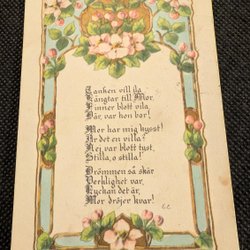 Tanken vill ila
Längtar till Mor,
Finner blott vila
Där, var hon bor!
Mor har mig kysst!
Är det en villa?
Nej var blott tyst,
Stilla, o stilla!
Drömmen så skär
Verklighet var,
Lyckan det är,
Mor dröjer kvar!